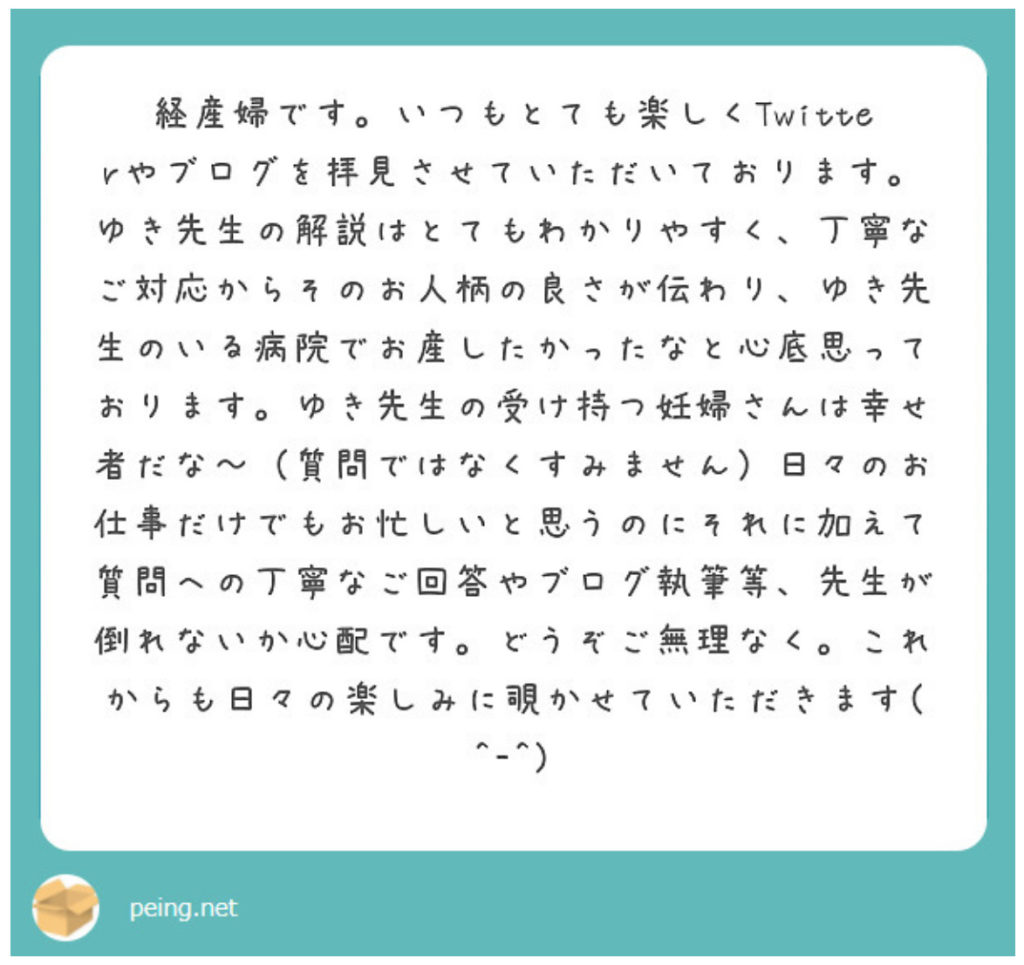 経産婦です。いつもとても楽しくTwitte
rやブログを拝見させていただいております。
ゆき先生の解説はとてもわかりやすく、丁寧な
ご対応からそのお人柄の良さが伝わり、ゆき先
生のいる病院でお産したかったなと心底思って
おります。ゆき先生の受け持つ妊婦さんは幸せ
者だな〜（質問ではなくすみません）日々のお
仕事だけでもお忙しいと思うのにそれに加えて
質問への丁寧なご回答やブログ執筆等、先生が
倒れないか心配です。どうぞご無理なく。これ
からも日々の楽しみに覗かせていただきます(
^-^)
peing.net